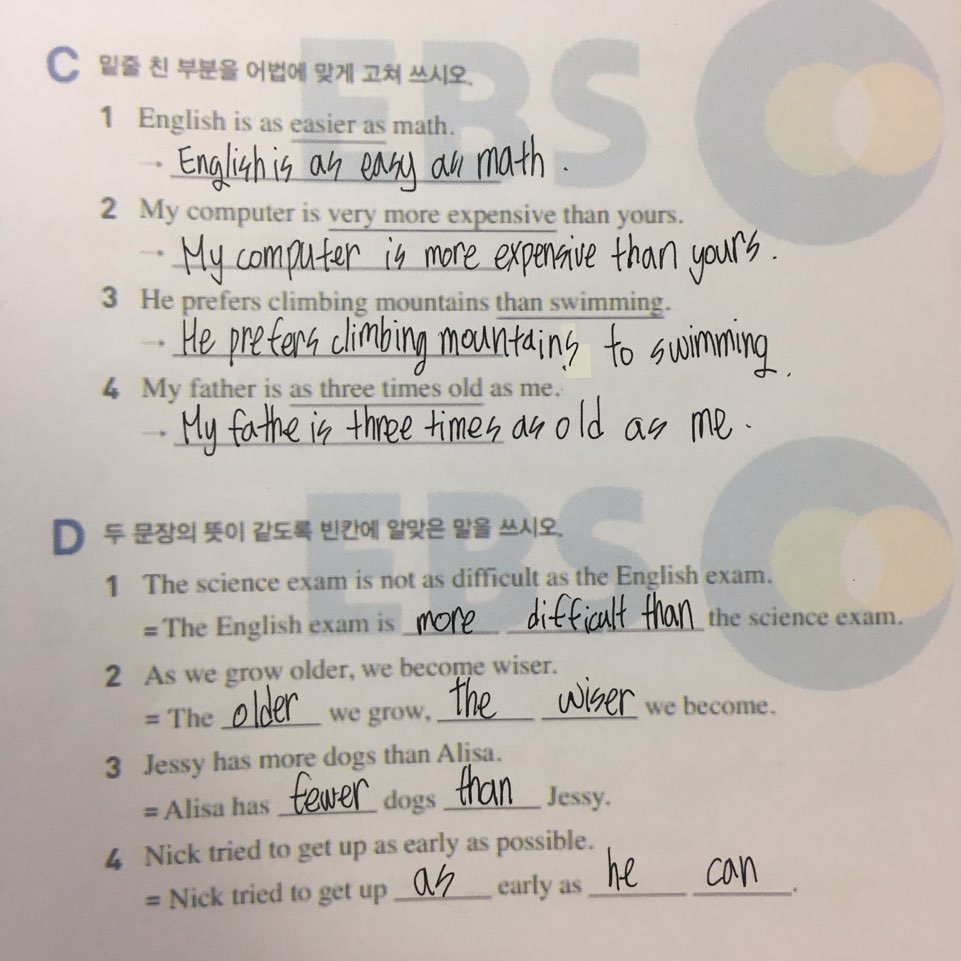 C 밑줄 친 부분을 어법에 맞게 고쳐 쓰시오.
1 English is as easier as math.
→ English is as easy as math.
2 My computer is very more expensive than yours.
→ My computer is more expensive than yours.
3 He prefers climbing mountains than swimming.
→ He prefers climbing mountains to swimming.
4 My father is as three times old as me.
→ My fathe is three times as old as me.
D 두 문장의 뜻이 같도록 빈칸에 알맞은 말을 쓰시오.
1 The science exam is not as difficult as the English exam.
= The English exam is more difficult than the science exam.
2 As we grow older, we become wiser.
= The older we grow, the wiser we become.
3 Jessy has more dogs than Alisa.
= Alisa has fewer dogs than Jessy.
4 Nick tried to get up as early as possible.
= Nick tried to get up as early as he can.
EBS
EBS